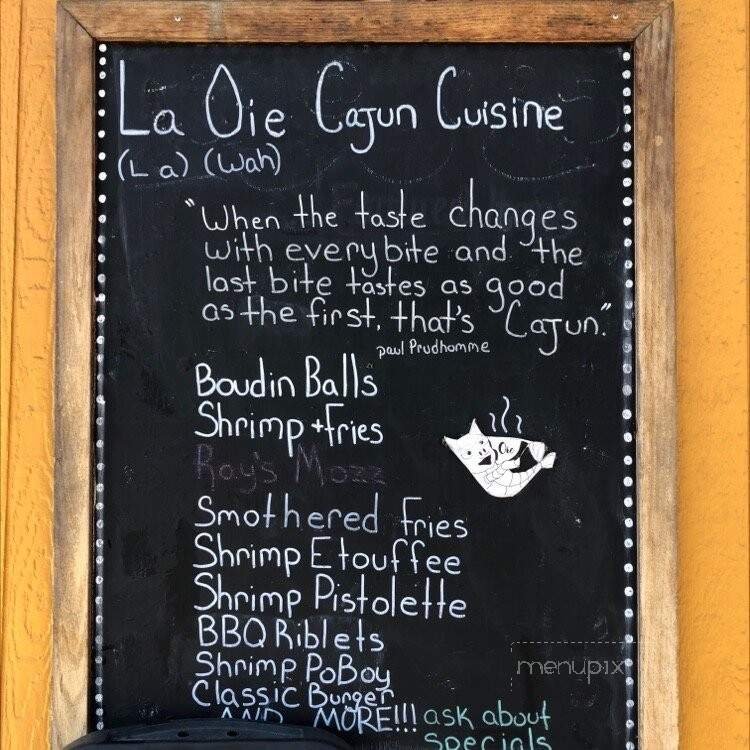 La Oie Cajun Cuisine
(La) (Wah)
"When the taste changes
with every bite and the
last bite tastes as good
as the first, that's Cajun."
paul Prudhomme
Boudin Balls
Shrimp + Fries
Oie
Ray's Mozz
Smothered fries
Shrimp Etouffee
Shrimp Pistolette
BBQ Riblets
Shrimp PoBoy
menupix
Classic Burger
AND MORE!!! ask about
specials